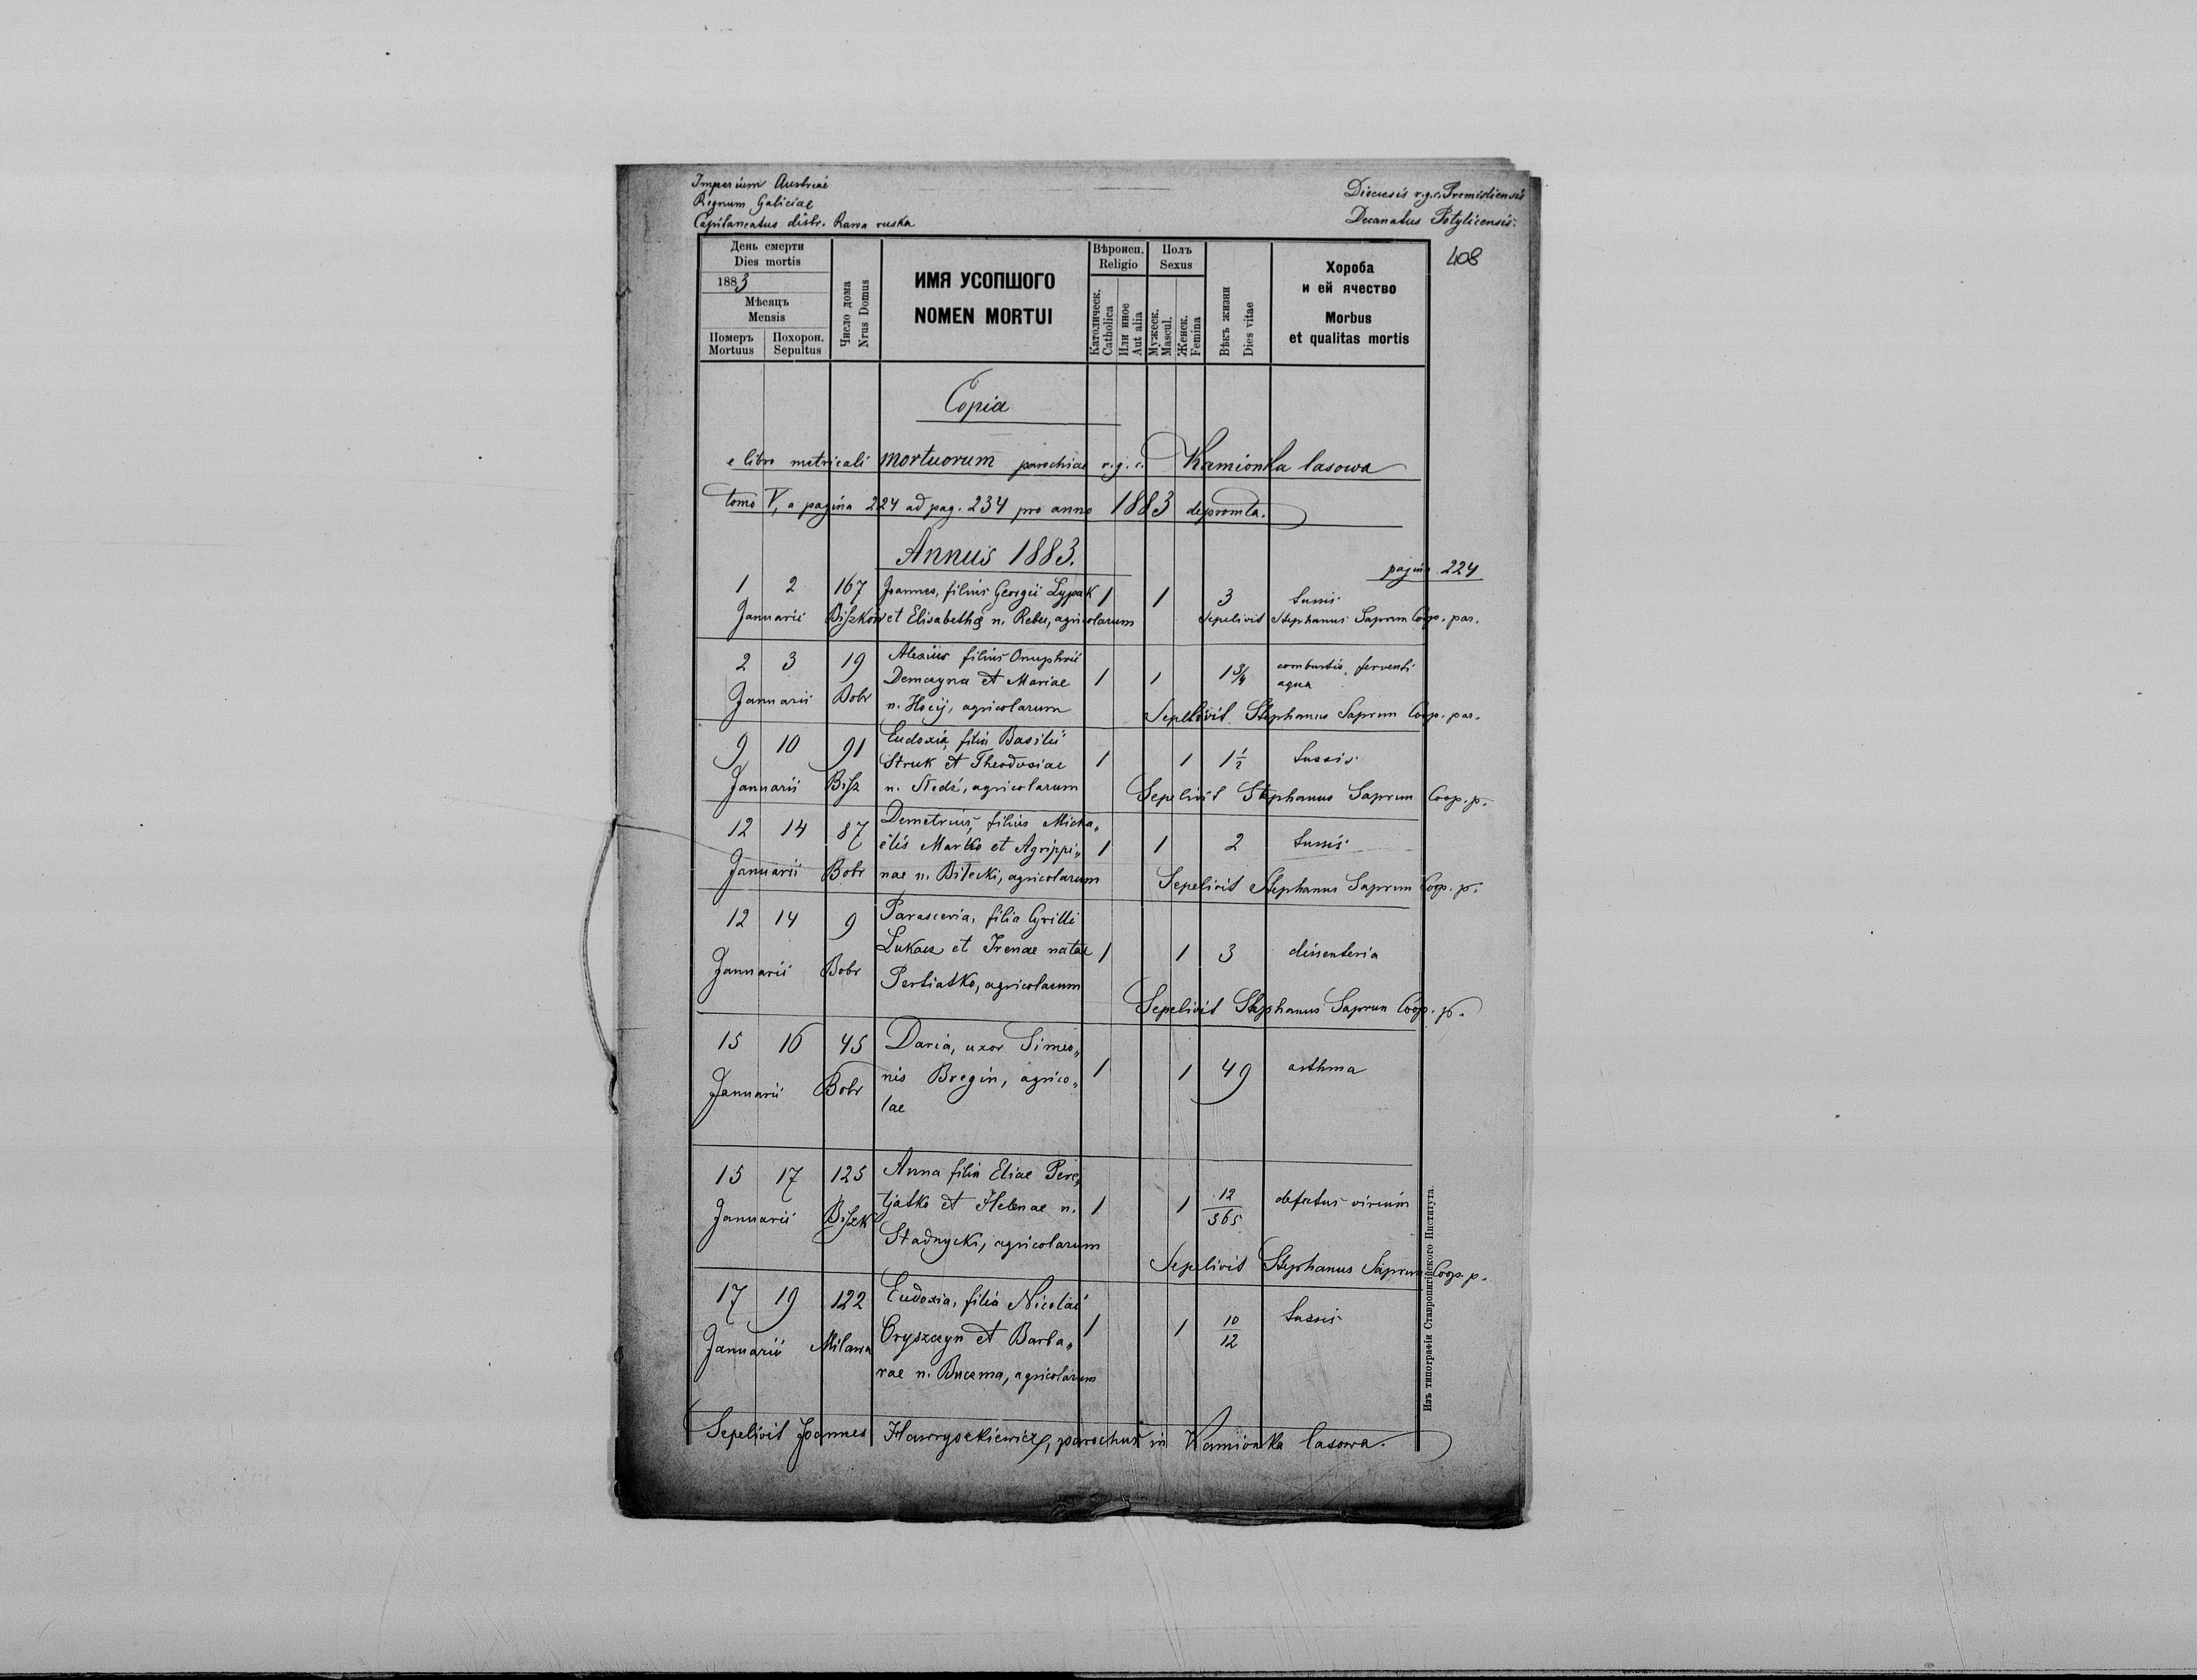 Imperium Austriae
Regnum Galiciae
Capitaneatus distr. Rawa ruska
Dioecesis r.g.c. Premisliensis
Decanatus Potylicensis.
408
День смерти
Dies mortis
1883
Мѣсяцъ
Mensis
Померъ
Mortuus
Похорон.
Sepultus
Число дома
Nrus Domus
ИМЯ УСОПШОГО
NOMEN MORTUI
Вѣроисп.
Religio
Католическ.
Catholica
Или иное
Aut alia
Полъ
Sexus
Мужеск.
Mascul.
Женск.
Femina
Вѣкъ жизни
Dies vitae
Хороба
и ей ячество
Morbus
et qualitas mortis
Copia
e libro metricali mortuorum parochiae r.g.c. Kamionka lasowa
tomo V, a pagina 224 ad pag. 234 pro anno 1883 depromta.
Annus 1883.
pagina 224
1 2 167 Joannes, filius Georgii Lypak 1 1 3 tussis
Januarii Biszków et Elisabethae n. Reber, agricolarum Sepelivit Stephanus Saprun Coop. par.
2 3 19 Alexius filius Onuphrii
Demczyna et Mariae 1 1 1 3/4 combustio ferventi
aqua
Januarii Bobr n. Hocij, agricolarum Sepelivit Stephanus Saprun Coop. par.
9 10 91 Eudoxia, filia Basilii
Struk et Theodosiae 1 1 1 1/2 tussis
Januarii Bisz n. Nedź, agricolarum Sepelivit Stephanus Saprun Coop. p.
12 14 87 Demetrius, filius Micha„
ëlis Martko et Agrippi„ 1 1 2 tussis
Januarii Bobr nae n. Bilecki, agricolarum Sepelivit Stephanus Saprun Coop. p.
12 14 9 Parasceria, filia Cyrilli
Lukacz et Irenae natae 1 1 3 dissenteria
Januarii Bobr Pertiatko, agricolarum
Sepelivit Stephanus Saprun Coop. p.
15 16 45 Daria, uxor Simeo„
Januarii Bobr nis Bregin, agrico„ 1 1 49 asthma
lae
15 17 125 Anna filia Eliae Pere„
Januarii Biszk tjatko et Helenae n. 1 1 12/365 defectus virium
Stadnycki, agricolarum
Sepelivit Stephanus Saprun Coop. p.
17 19 122 Eudoxia, filia Nicolai tussis
Januarii Milawa Oryszczyn et Barba„ 1 1 10/12
rae n. Buczma, agricolarum
Sepelivit Joannes Hawryszkiewicz, parochus in Kamionka lasowa.
Изъ типографіи Ставропигійского Института.